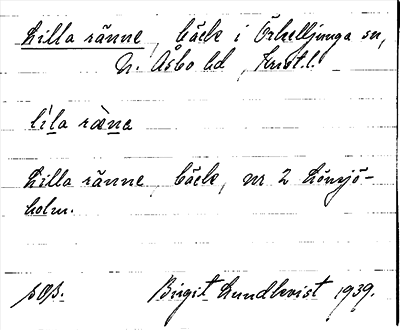 Lilla ränne, bäck i Örkelljunga sn,
N. Åsbo hd, Krist.l.
li̱la ræ̀ṉa
Lilla ränne, bäck, nr 2 Lönsjö-
holm.
Birgit Lundkvist 1939.